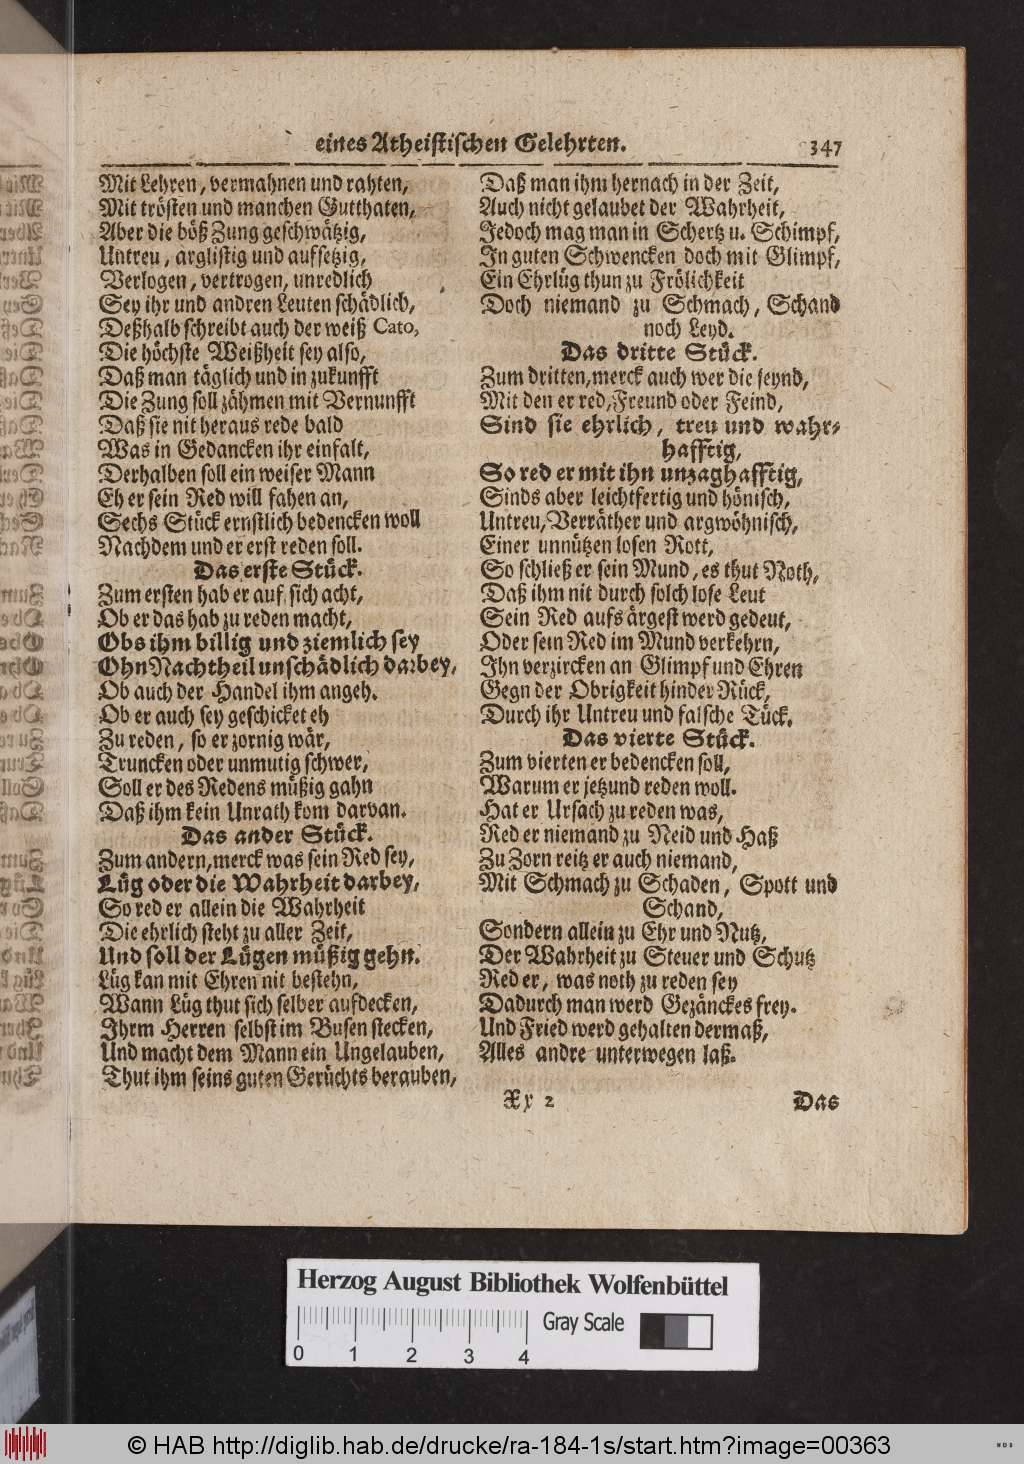 eines Atheistischen Gelehrten. 347
Mit Lehren, vermahnen und rahten,
Mit trösten und manchen Gutthaten,
Aber die böß Zung geschwätzig,
Untreu, arglistig und aufsetzig,
Verlogen, vertrogen, unredlich
Sey ihr und andren Leuten schädlich,
Deßhalb schreibt auch der weiß Cato,
Die höchste Weißheit sey also,
Daß man täglich und in zukunfft
Die Zung soll zähmen mit Vernunfft
Daß sie nit heraus rede bald
Was in Gedancken ihr einfalt,
Derhalben soll ein weiser Mann
Eh er sein Red will fahen an,
Sechs Stück ernstlich bedencken woll
Nachdem und er erst reden soll.
Das erste Stück.
Zum ersten hab er auf sich acht,
Ob er das hab zu reden macht,
Obs ihm billig und ziemlich sey
Ohn Nachtheil unschädlich darbey,
Ob auch der Handel ihm angeh.
Ob er auch sey geschicket eh
Zu reden, so er zornig wär,
Truncken oder unmutig schwer,
Soll er des Redens müßig gahn
Daß ihm kein Unrath kom darvan.
Das ander Stück.
Zum andern, merck was sein Red sey,
Lüg oder die Wahrheit darbey,
So red er allein die Wahrheit
Die ehrlich steht zu aller Zeit,
Und soll der Lügen müßig gehn.
Lüg kan mit Ehren nit bestehn,
Wann Lüg thut sich selber aufdecken,
Ihrm Herren selbst im Busen stecken,
Und macht dem Mann ein Ungelauben,
Thut ihm seins guten Gerüchts berauben,
Daß man ihm hernach in der Zeit,
Auch nicht gelaubet der Wahrheit,
Jedoch mag man in Schertz u. Schimpf,
In guten Schwencken doch mit Glimpf,
Ein Ehrlüg thun zu Frölichkeit
Doch niemand zu Schmach, Schand
noch Leyd.
Das dritte Stück.
Zum dritten, merck auch wer die seynd,
Mit den er red, Freund oder Feind,
Sind sie ehrlich, treu und wahr-
hafftig,
So red er mit ihn unzaghafftig,
Sinds aber leichtfertig und hönisch,
Untreu, Verräther und argwöhnisch,
Einer unnützen losen Rott,
So schließ er sein Mund, es thut Noth,
Daß ihm nit durch solch lose Leut
Sein Red aufs ärgest werd gedeut,
Oder sein Red im Mund verkehrn,
Ihn verzircken an Glimpf und Ehren
Gegn der Obrigkeit hinder Rück,
Durch ihr Untreu und falsche Tück.
Das vierte Stück.
Zum vierten er bedencken soll,
Warum er jetzund reden woll.
Hat er Ursach zu reden was,
Red er niemand zu Neid und Haß
Zu Zorn reitz er auch niemand,
Mit Schmach zu Schaden, Spott und
Schand,
Sondern allein zu Ehr und Nutz,
Der Wahrheit zu Steuer und Schutz
Red er, was noth zu reden sey
Dadurch man werd Gezänckes frey.
Und Fried werd gehalten dermaß,
Alles andre unterwegen laß.
Xx 2 Das
Herzog August Bibliothek Wolfenbüttel
Gray Scale
0 1 2 3 4
© HAB http://diglib.hab.de/drucke/ra-184-1s/start.htm?image=00363